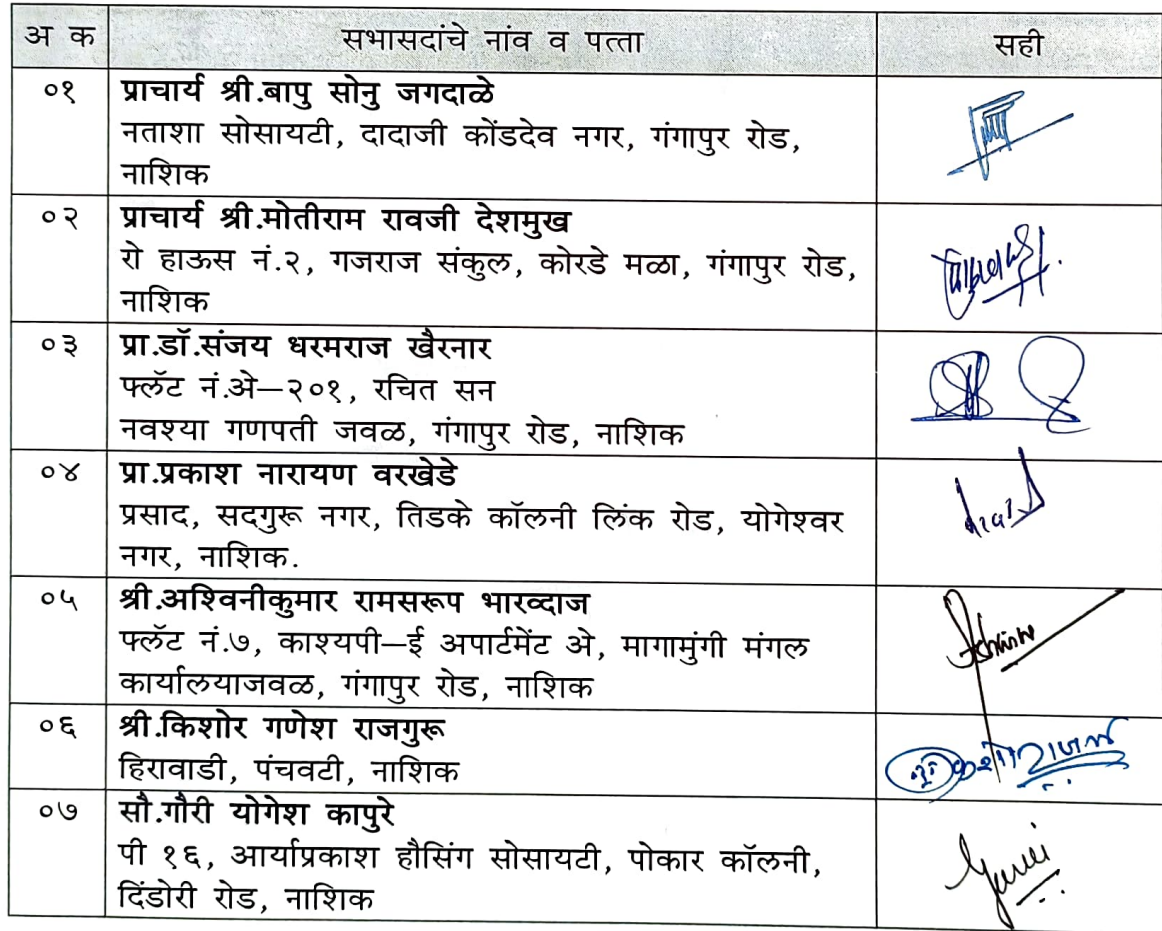 अ क सभासदांचे नांव व पत्ता सही
०१ प्राचार्य श्री.बापु सोनु जगदाळे
नताशा सोसायटी, दादाजी कोंडदेव नगर, गंगापुर रोड,
नाशिक
०२ प्राचार्य श्री.मोतीराम रावजी देशमुख
रो हाऊस नं.२, गजराज संकुल, कोरडे मळा, गंगापुर रोड,
नाशिक
०३ प्रा.डॉ.संजय धरमराज खैरनार
फ्लॅट नं.अे—२०१, रचित सन
नवश्या गणपती जवळ, गंगापुर रोड, नाशिक
०४ प्रा.प्रकाश नारायण वरखेडे
प्रसाद, सदगुरू नगर, तिडके कॉलनी लिंक रोड, योगेश्वर
नगर, नाशिक.
०५ श्री.अश्विनीकुमार रामसरूप भारव्दाज
फ्लॅट नं.७, काश्यपी—ई अपार्टमेंट अे, मागामुंगी मंगल
कार्यालयाजवळ, गंगापुर रोड, नाशिक
०६ श्री.किशोर गणेश राजगुरू
हिरावाडी, पंचवटी, नाशिक
०७ सौ.गौरी योगेश कापुरे
पी १६, आर्याप्रकाश हौसिंग सोसायटी, पोकार कॉलनी,
दिंडोरी रोड, नाशिक